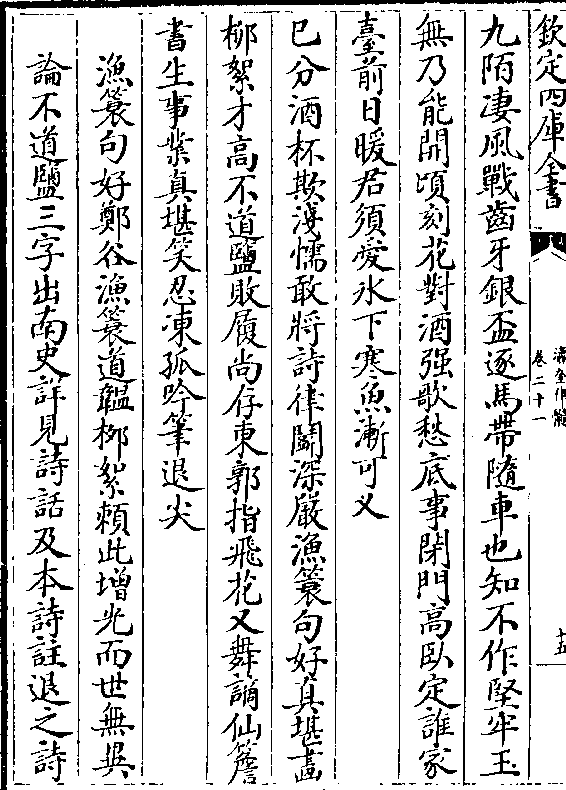 欽定四庫全書
瀛奎律髓
卷二十一
十五
九陌凄風戰齒牙銀盃逐馬帶隨車也知不作堅牢玉
無乃能開頃刻花對酒强歌愁底事閉門高臥定誰家
臺前日暖君須愛氷下寒魚漸可乂
已分酒杯欺淺懦敢將詩律鬭深嚴漁簑句好真堪畫
柳絮才高不道鹽敗履尚存東郭指飛花又舞謫仙簷
書生事業真堪笑忍凍孤吟筆退尖
漁簑句好鄭谷漁簑道韞柳絮頼此增光而世無異
論不道鹽三字出南史詳見詩話及本詩註退之詩